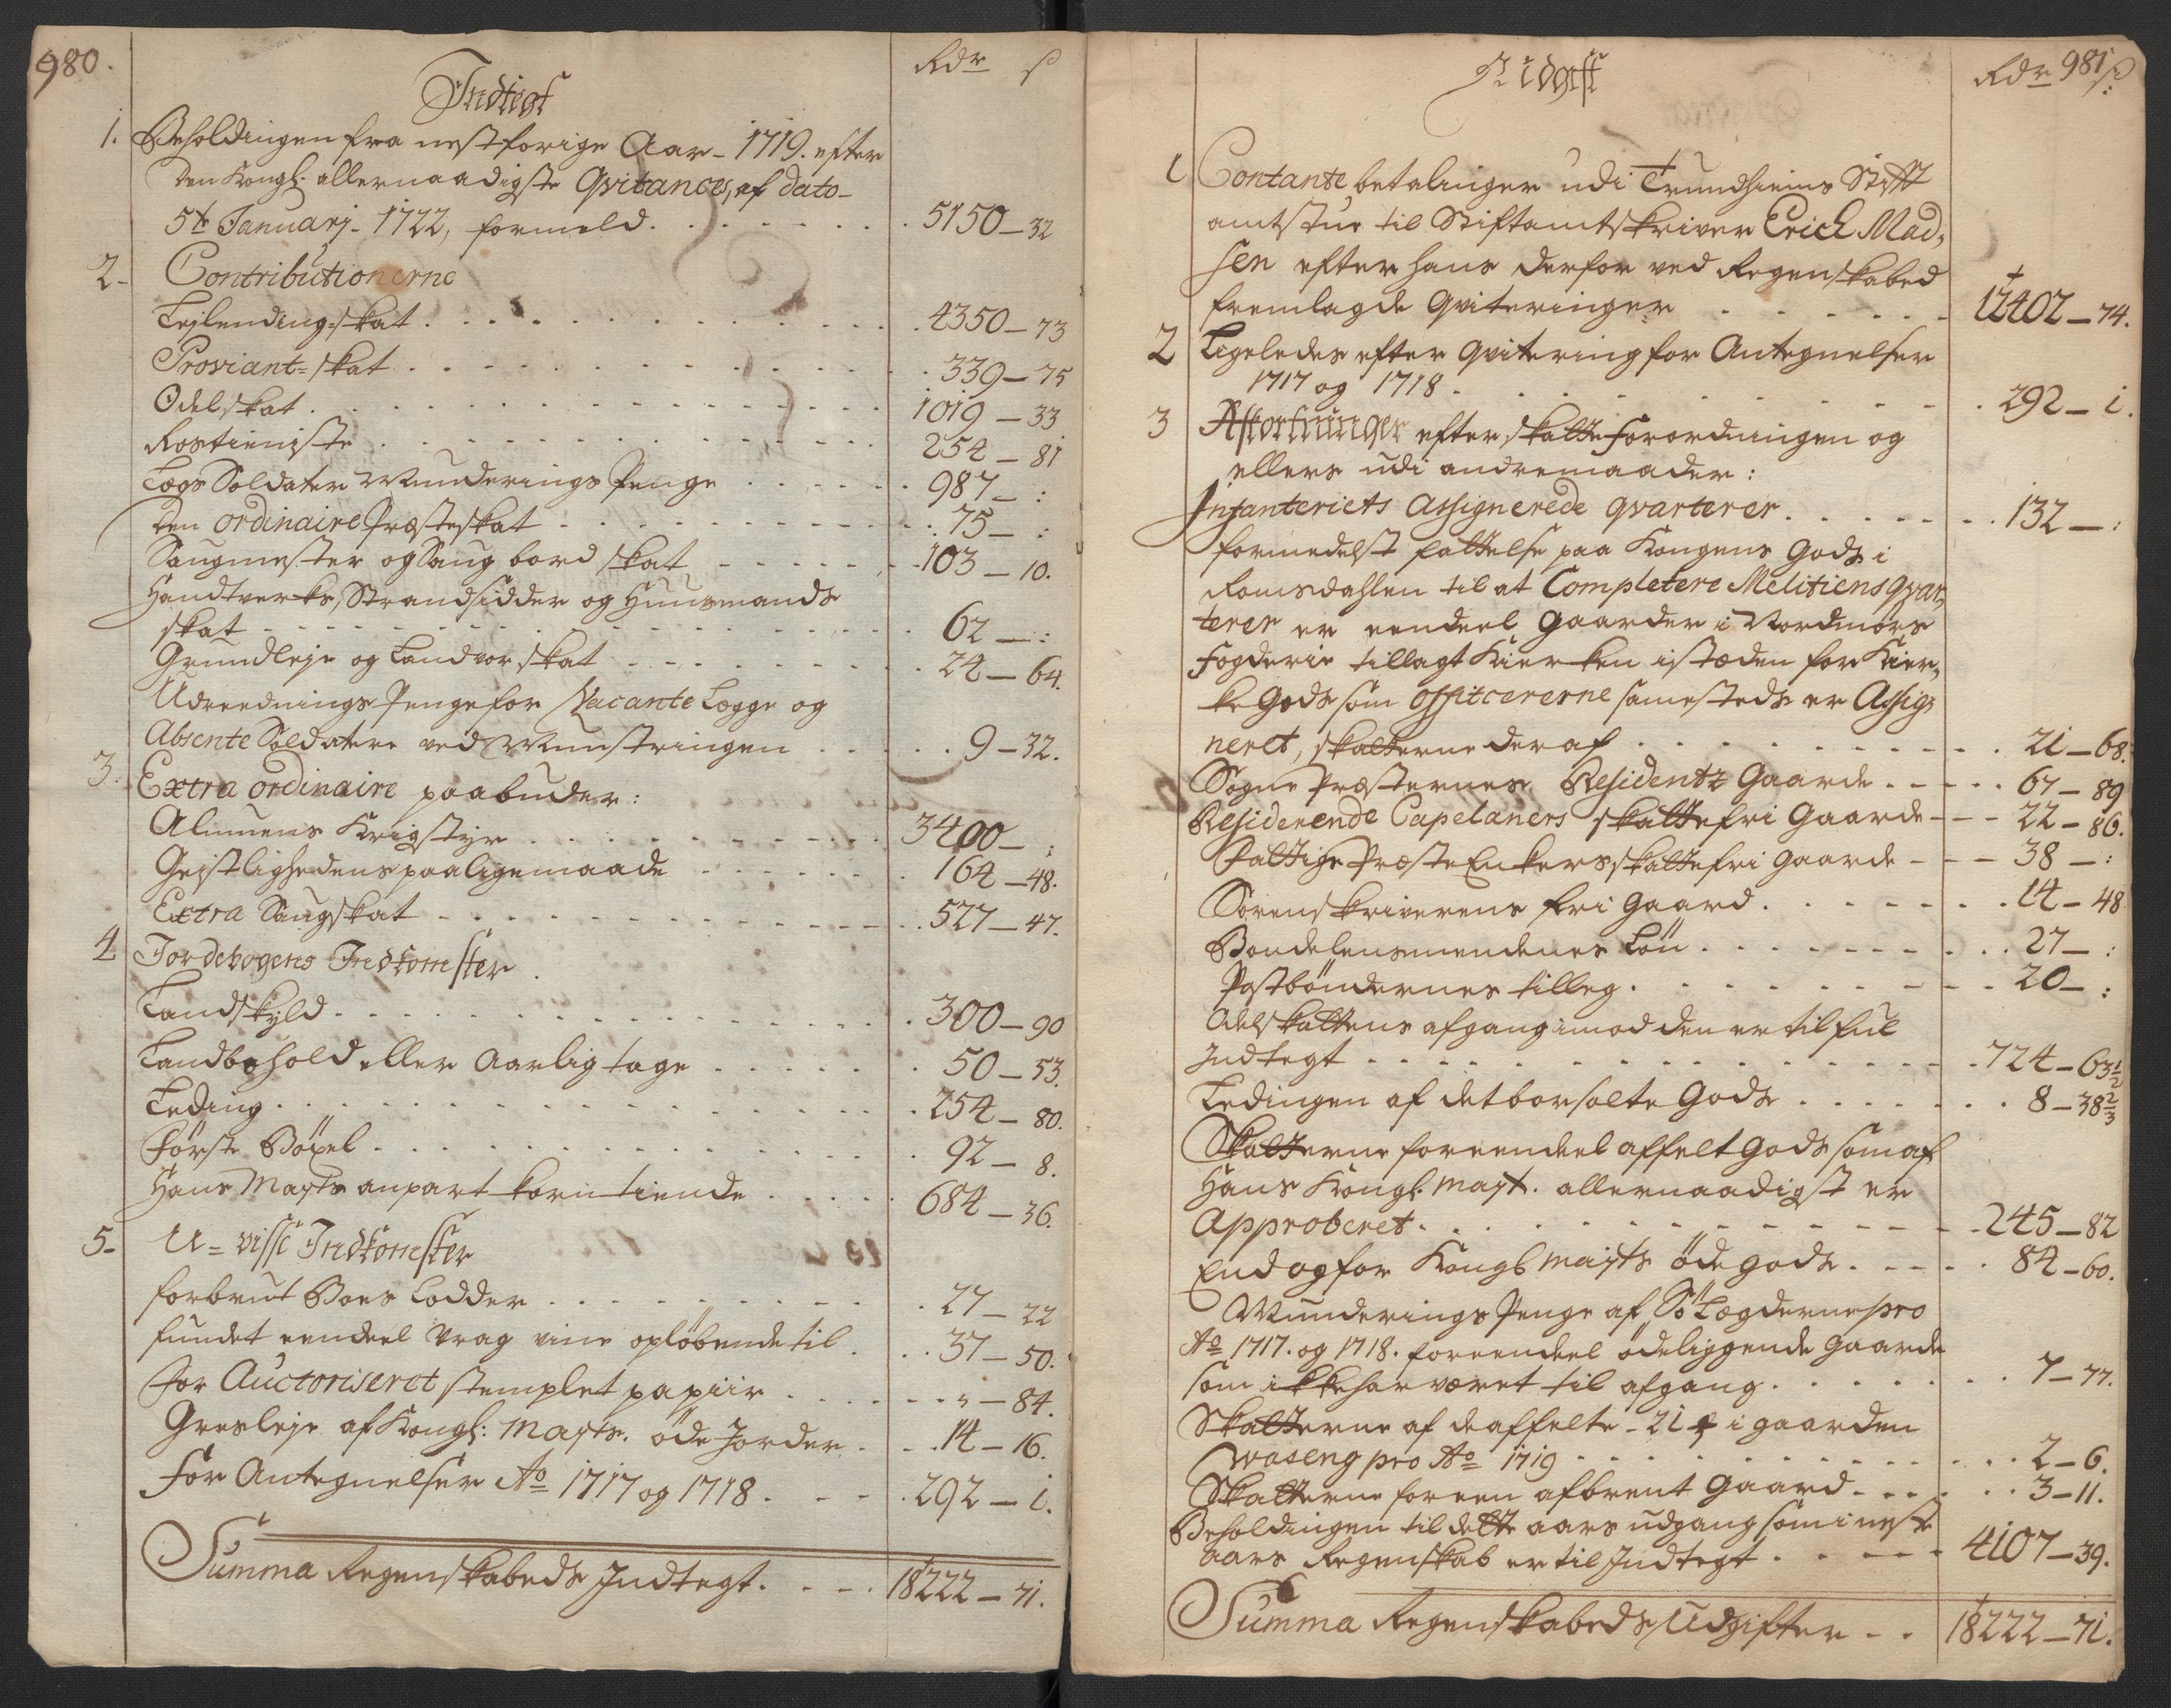 980.
Indtegt
Rdr ß
1. Beholdingen fra nest forige Aar - 1719. efter
den Kongl: allernaadigste Qvitances, af dato -
5t Januarj - 1722, formeld . . . 5150 - 32
2 - Contributionerne
Lejlending-skat . . . 4350 - 73
Proviant-skat . . . 339 - 75
Odelskat . . . 1019 - 33
Rostieniste . . . 254 - 81
Legs Soldater Munderings Penge . . . 987 - :
Den ordinaire Præsteskat . . . 75 - :
Saugmester og Saug bord skat . . . 103 - 10.
Handtverks, Strandsidder og Huusmands
skat . . . 62 - :
Grundleje og Landvor skat . . . 24 - 64.
Udreednings Penge for Vacante Legge og
Absente Soldatere ved Munstringen . . . 9 - 32.
3. Extra ordinaire paabuder:
Almuens Krigstyr . . . 3400 - :
Gejstlighedens paa ligemaade . . . 164 - 48.
Extra Saugskat . . . 527 - 47.
4 Jordebogens Indkomster
Landskyld . . . 300 - 90
Landbohold eller Aarlig tage . . . 50 - 53.
Leding . . . 254 - 80.
Förste Böxel . . . 92 - 8.
Hans Mayts anpart korntiende . . . 684 - 36.
5 - U-visse Indkomster
forbrut Boes Lodder . . . 27 - 22
fundet eendeel vrag vine oplöbende til . . . 37 - 50.
For Auctoriseret stemplet papiir . . . " - 84.
Gresleje af Kongl: Mayts. öde Jorder . . . 14 - 16.
For Antegnelser Ao 1717 og 1718 . . . 292 - 1.
Summa Regenskabeds Indtegt . . . 18222 - 71.
981
Udgift
Rdr ß
1 Contante betalinger udi Trundhiems Stift
amtstue til Stiftamtskriver Erich Mad,
sen efter hans derfor ved Regenskabed
fremlagde Qviteringer . . . 12402 - 74.
2 Ligeledes efter Qvitering for Antegnelser
1717 og 1718 . . . 292 - 1.
3 Afkortninger efter skatte forordningen og
ellers udi andre maader:
Infanteriets Assignerede qvarterer . . . 132 - :
formedelst fattelse paa Kongens Gods i
Romsdahlen til at Completere Melitiens qvar,
terer er eendeel gaarder i Nordmörs
Fogderie tillagt Kierken i steden for Kier,
ke Gods som Officererne samesteds er Assig,
neret, skatterne deraf . . . 21 - 68.
Sogne Præsternes Residentz Gaarde . . . 67 - 89
Residerende Capelaners skattefri Gaarde . . . 22 - 86.
Fattige Præste Enkers skattefri gaarde . . . 38 - :
Sorenskriverens fri gaard . . . 14 - 48
Bondelensmendenes Lön . . . 27 - :
Postböndernes tilleg . . . 20 - :
Odelskattens afgang imod den er til ful
Indtegt . . . 724 - 63 1/2
Ledingen af det borsolte Gods . . . 8 - 38 2/3
Skatterne for eendeel affelt Gods som af
Hans Kongl: Mayt. allernaadigst er
Approberet . . . 245 - 82
End og for Kongl Mayts öde gods . . . 84 - 60.
Munderings Penge af Sö Legderne pro
Ao 1717. og 1718. for eendeel ödeliggende gaarde
som ikke har været til afgang . . . 7 - 77.
Skatterne af de affelte - 21 i gaarden
Waseng pro Ao 1719 . . . 2 - 6.
Skatterne for een afbrent gaard . . . 3 - 11.
Beholdingen til dette aars udgang som i nest
aars Regenskab er til Indtegt . . . 4107 - 39.
Summa Regenskabeds Udgifter . . . 18222 - 71.